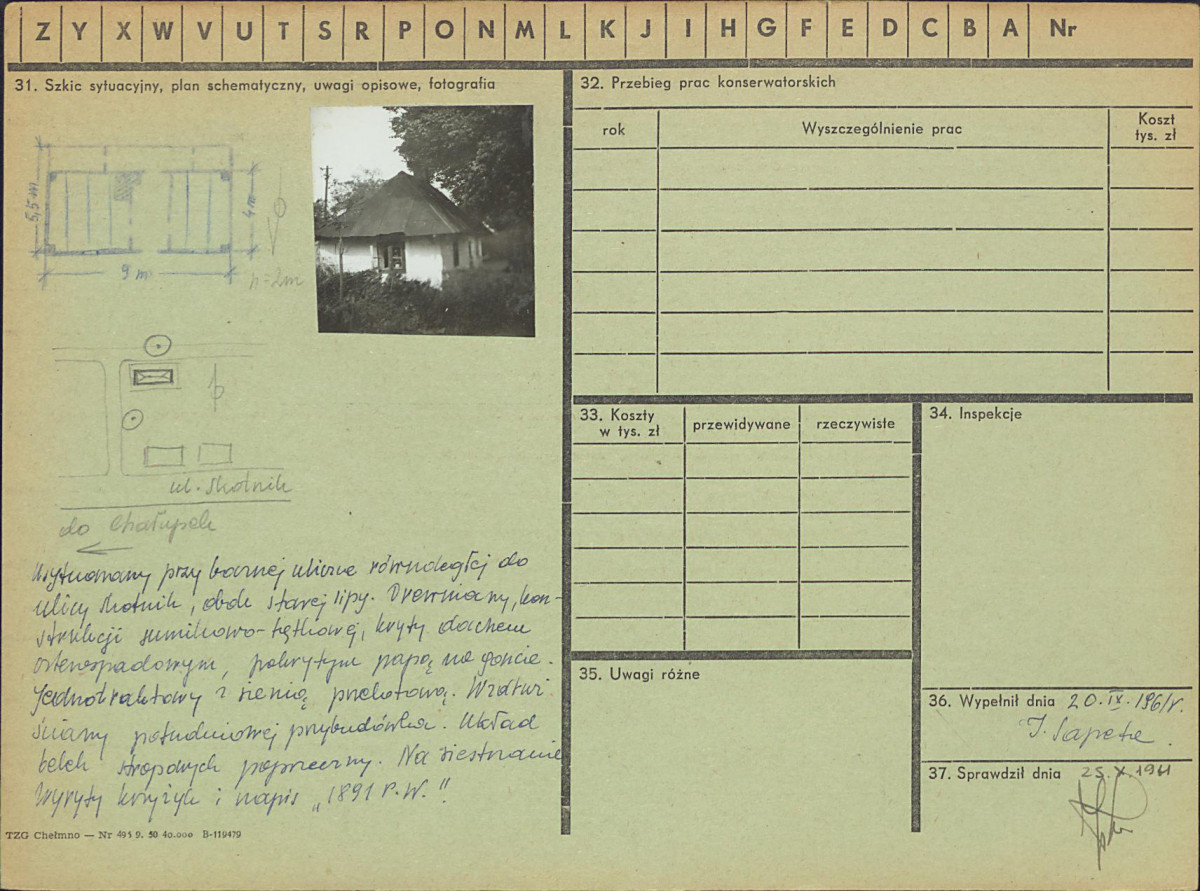 Z Y X W V U T S R P O N M L K J I H G F E D C B A Nr
31. Szkic sytuacyjny, plan schematyczny, uwagi opisowe, fotografia
5,5 m
4 m
9 m
h=2m
ul. Skotnik
do Chałupek
Usytuowany przy bocznej uliczce równoległej do
ulicy Skotnik, obok starej lipy. Drewniany, kon-
strukcji sumikowo-łątkowej, kryty dachem
czterospadowym, pokrytym papą na goncie.
Jednotraktowy z sienią przelotową. Wzdłuż
ściany południowej przybudówka. Układ
belek stropowych poprzeczny. Na siestrzanie
wyryty krzyżyk i napis „1891 r. W."
TZG Chełmno — Nr 495 9. 50 40.000 B-119479
32. Przebieg prac konserwatorskich
rok
Wyszczególnienie prac
Koszt
tys. zł
33. Koszty
w tys. zł
przewidywane
rzeczywiste
34. Inspekcje
35. Uwagi różne
36. Wypełnił dnia 20.IX.1961r.
J. Sapeta
37. Sprawdził dnia 25.X.1961